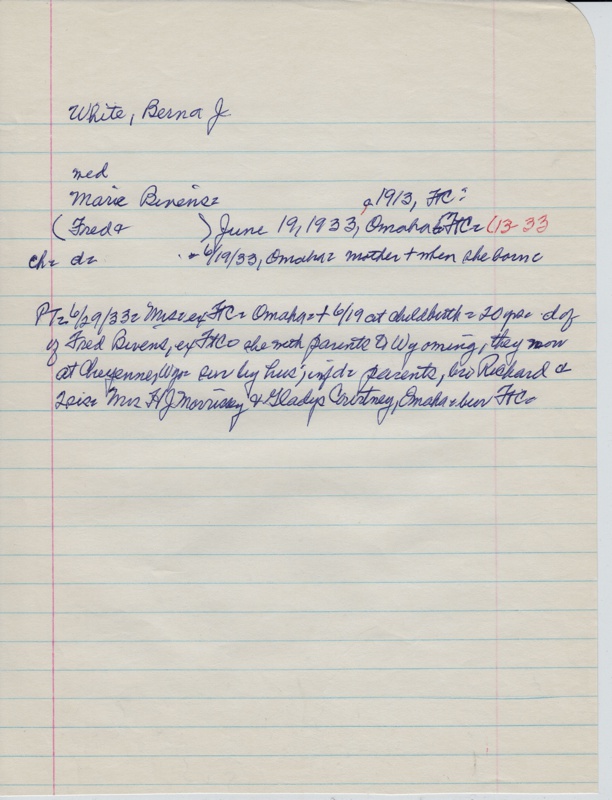 White, Berna J.
med
Marie Bivens= 1913, FtC?
(Fred & ) June 19, 1933, Omaha FtC= (13-33
ch= d= 6/19/33, Omaha= mother + when she born=
PT= 6/29/33= Mrs= ex FtC= Omaha= + 6/19 at childbirth = 20 yrs= d of
of Fred Bivens, ex FtC= she with parents to Wyoming, they now
at Cheyenne, Wyo= sur by hus', inf d= parents, bro Richard &
2 sis= Mrs H J Morrissey & Gladys Courtney, Omaha= bur FtC=